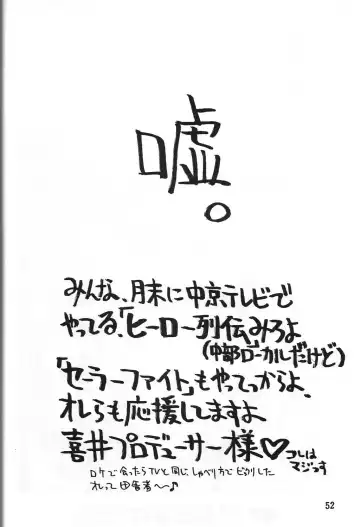 嘘。
みんな、月末に中京テレビで
やってる、「ヒーロー列伝」みろよ
(中部ローカルだけど)
「セーラーファイト」もやってっからよ。
オレらも応援してますよ
喜井プロデューサー様♡コレは
マジっす
ロケで会ったらTVと同じしゃべり方でビックリした
オレって田舎者〜〜♪
52